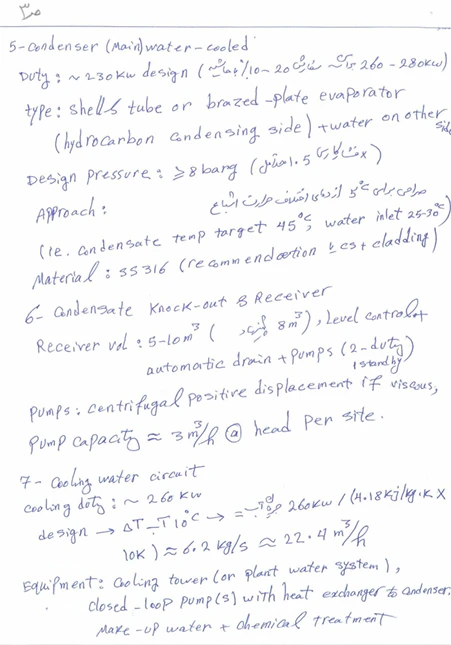 ص ۳
5-Condenser (Main) water-cooled
Duty: ~ 230 kw design ( 10-20% 260-280kw)
type: shell & tube or brazed-plate evaporator
(hydrocarbon condensing side) + water on other side
Design pressure: ≥ 8 barg ( 1.5 x فشار کاری )
Approach: طراحی برای 5°C اختلاف حرارت اشباع
(ie. Condensate temp target 45°C, water inlet 25-30°C)
Material: SS316 (recommendation CS + cladding)
6- Condensate Knock-out & Receiver
Receiver vol: 5-10 m³ ( 8 m³ ), Level control +
automatic drain + pumps (2-duty/
1 standby)
Pumps: centrifugal positive displacement if viscous,
Pump capacity ≈ 3 m³/h @ head per site.
7- Cooling water circuit
cooling duty: ~ 260 kw
design → ΔT = 10°C → = 260kw / (4.18 kj/kg.K x
10K) ≈ 6.2 kg/s ≈ 22.4 m³/h
Equipment: Cooling tower (or plant water system),
closed-loop pump(s) with heat exchanger to condenser.
Make-up water + chemical treatment